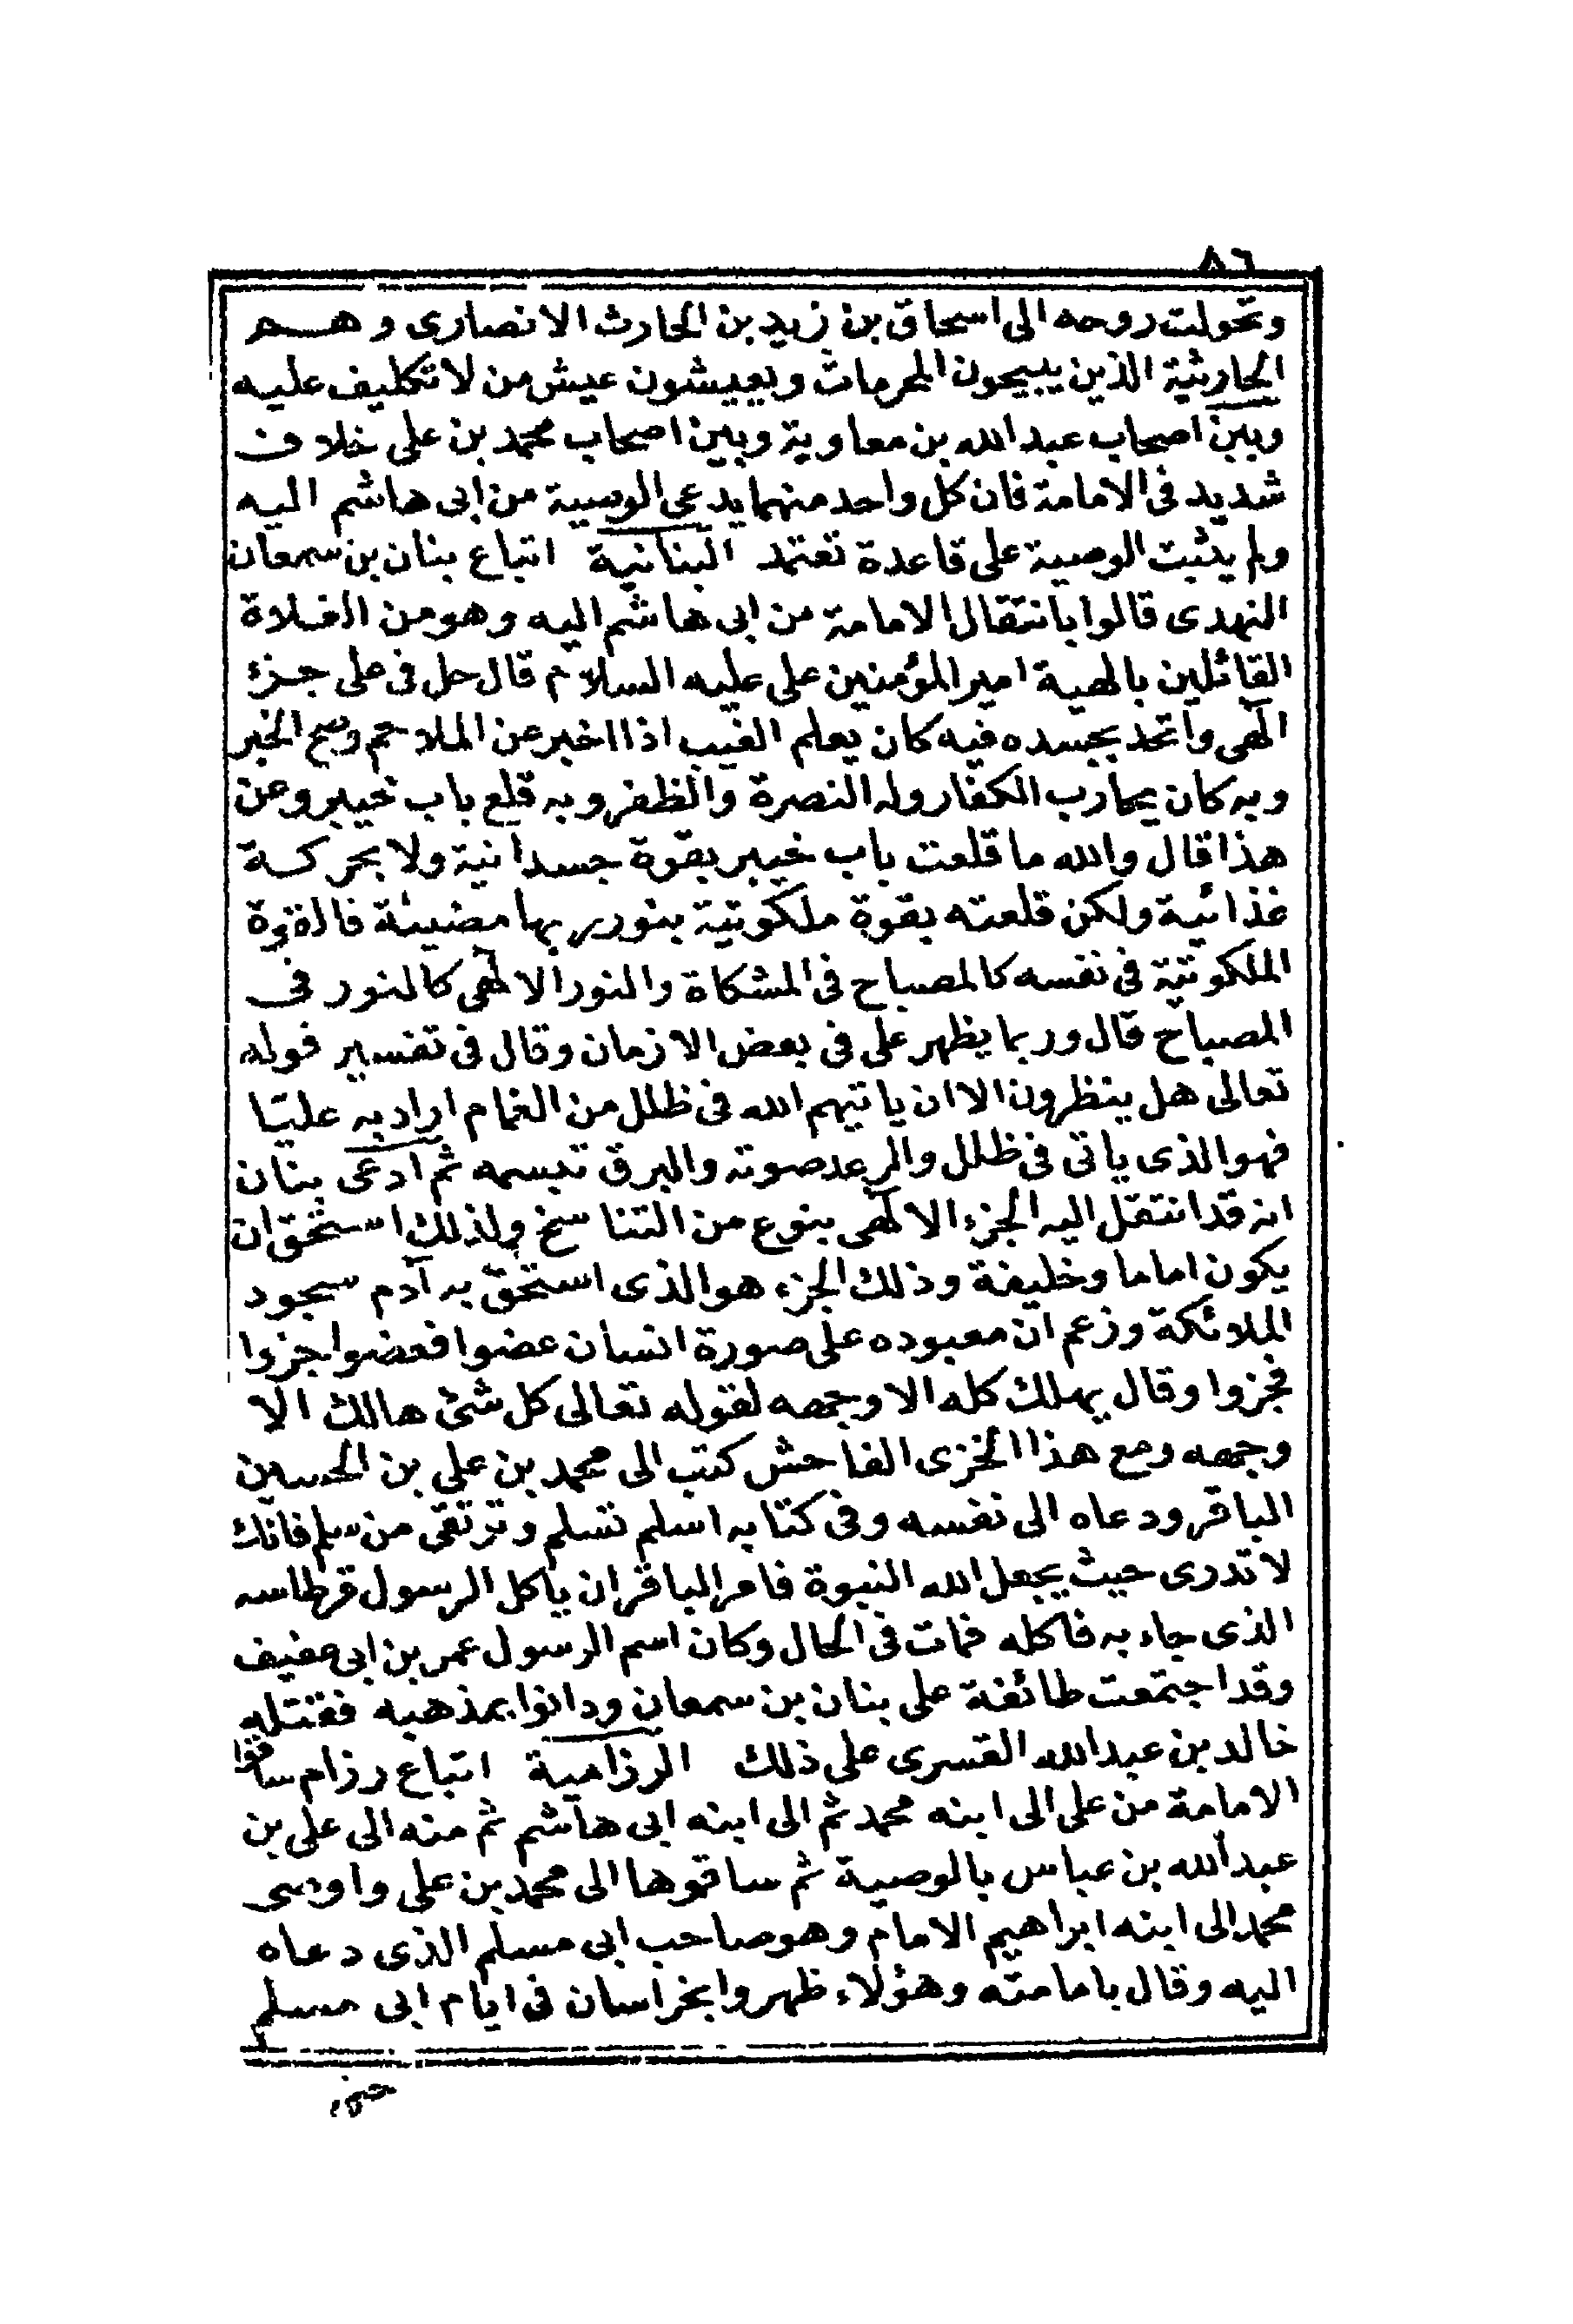 ٨٦
وتحولت روحه الى اسحاق بن زيد بن الحارث الانصارى وهم
الحارثية الذين يبيحون المحرمات ويعيشون عيش من لا تكليف عليه
وبين اصحاب عبد الله بن معاوية وبين اصحاب محمد بن على خلاف
شديد فى الامامة فان كل واحد منهما يدعى الوسية من ابى هاشم اليه
ولم يثبت الوصية على قاعدة تعتمد البنانية اتباع بنان بن سمعان
النهدى قالوا بانتقال الامامة من ابى هاشم اليه وهو من الغلاة
القائلين بالهية امير المؤمنين على عليه السلام قال حل فى على جزء
الهى واتحد بجسده فيه كان يعلم الغيب اذا اخبر عن الملاحم وصح الخبر
وبه كان يحارب الكفار وله النصرة والظفر وبه قلع باب خيبر وعن
هذا قال والله ما قلعت باب خيبر بقوة جسدانية ولا بحركة
غذائية ولكن قلعته بقوة ملكوتية بنور ربها مضيئة فالقوة
الملكوتية فى نفسه كالمصباح فى المشكاة والنور الالهى كالنور فى
المصباح قال وربما يظهر على فى بعض الازمان وقال فى تفسير قوله
تعالى هل ينظرون الا ان ياتيهم الله فى ظلل من الغمام اراد به عليّا
فهو الذى ياتى فى ظلل والرعد صوته والبرق تبسمه ثم ادعى بنان
انه قد انتقل اليه الجزء الالهى بنوع من التناسخ ولذلك استحق ان
يكون اماما وخليفة وذلك الجزء هو الذى استحق به آدم سجود
الملائكة وزعم ان معبوده على صورة انسان عضوا فعضوا جزوا
فجزوا وقال يهلك كله الا وجهه لقوله تعالى كل شئ هالك الا
وجهه ومع هذا الخزى الفاحش كتب الى محمد بن على بن الحسين
الباقر ودعاه الى نفسه وفى كتابه اسلم تسلم وترتقى من سلم فانك
لا تدرى حيث يجعل الله النبوة فامر الباقر ان ياكل الرسول قرطاسه
الذى جاء به فاكله فمات فى الحال وكان اسم الرسول عمر بن ابى عفيف
وقد اجتمعت طائفة على بنان بن سمعان ودانوا بمذهبه فقتله
خالد بن عبد الله القسرى على ذلك الرزامية اتباع رزام ساقوا
الامامة من على الى ابنه محمد ثم الى ابنه ابى هاشم ثم منه الى على بن
عبد الله بن عباس بالوصية ثم ساقوها الى محمد بن على واوصى
محمد الى ابنه ابراهيم الامام وهو صاحب ابى مسلم الذى دعاه
اليه وقال بامامته وهؤلاء ظهروا بخراسان فى ايام ابى مسلم